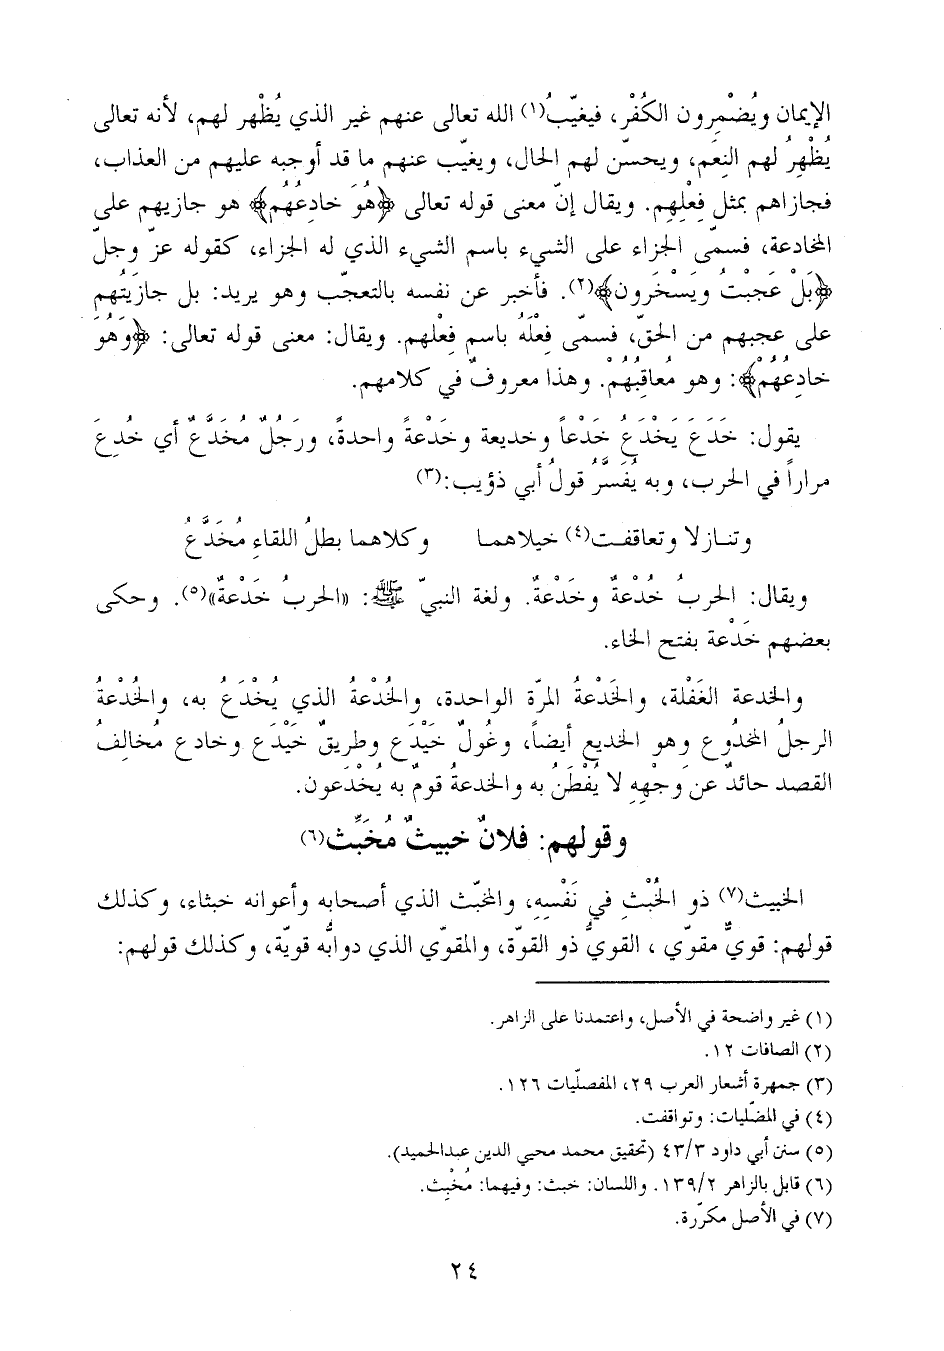 الإيمان ويُضْمِرون الكُفْر، فيغيّبُ(١) الله تعالى عنهم غير الذي يُظْهِر لهم، لأنه تعالى
يُظْهِرُ لهم النِعَم، ويحسّن لهم الحال، ويغيّب عنهم ما قد أوجبه عليهم من العذاب،
فجازاهم بمثل فِعْلِهِم. ويقال إنّ معنى قوله تعالى ﴿هُوَ خادِعُهُم﴾ هو جازيهم على
المخادعة، فسمّى الجزاء على الشيء باسم الشيء الذي له الجزاء، كقوله عزّ وجلّ
﴿بَلْ عَجِبْتُ ويَسْخَرون﴾(٢). فأخبر عن نفسه بالتعجّب وهو يريد: بل جازَيْتُهم
على عجبهم من الحقّ، فسمّى فِعْلَهُ باسم فِعْلهم. ويقال: معنى قوله تعالى: ﴿وَهُوَ
خادِعُهُمْ﴾: وهو مُعاقِبُهُمْ. وهذا معروفٌ في كلامهم.
يقول: خَدَعَ يَخْدَعُ خَدْعاً وخديعة وخَدْعةً واحدةً، ورَجُلٌ مُخَدَّعٌ أي خُدِعَ
مراراً في الحرب، وبه يُفَسَّرُ قولُ أبي ذؤيب:(٣)
وتنازلا وتعاقفت(٤) خيلاهما وكلاهما بطلُ اللقاءِ مُخَدَّعُ
ويقال: الحربُ خُدْعةٌ وخَدْعةٌ. ولغة النبيّ ﷺ: «الحربُ خَدْعةٌ»(٥). وحكى
بعضهم خَدْعة بفتح الخاء.
والخدعة الغَفْلة، والخَدْعةُ المرّة الواحدة، والخُدْعةُ الذي يُخْدَعُ به، والخُدْعةُ
الرجلُ المخدُوع وهو الخديع أيضاً، وغُولٌ خَيْدَع وطريقٌ خَيْدَع وخادع مُخالِفُ
القصد حائدٌ عن وَجْهِهِ لا يُفْطَنُ به والخدعةُ قومٌ به يُخْدَعون.
وقولهم: فلانٌ خبيثٌ مُخَبِّث(٦)
الخبيث(٧) ذو الخُبْثِ في نَفْسِهِ، والمخبّث الذي أصحابه وأعوانه خبثاء، وكذلك
قولهم: قويٌّ مقوّي ، القويُّ ذو القوّة، والمقوّي الذي دوابُّه قويّة، وكذلك قولهم:
(١) غير واضحة في الأصل، واعتمدنا على الزاهر.
(٢) الصافات ١٢.
(٣) جمهرة أشعار العرب ٢٩، المفصليّات ١٢٦.
(٤) في المضّليات: وتواقفت.
(٥) سنن أبي داود ٤٣/٣ (تحقيق محمد محيي الدين عبدالحميد).
(٦) قابل بالزاهر ١٣٩/٢. واللسان: خبث: وفيهما: مُخْبِث.
(٧) في الأصل مكرّرة.
٢٤